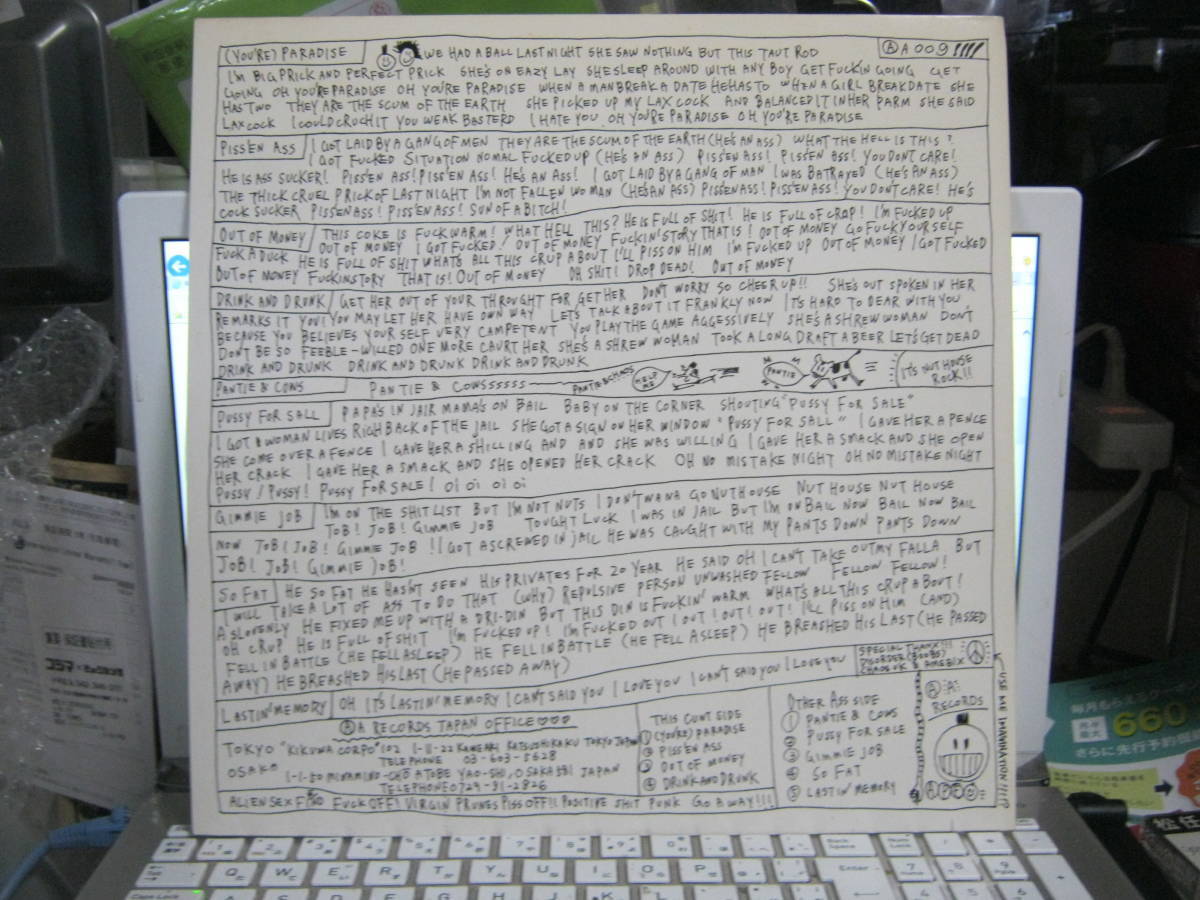 (YOU'RE) PARADISE WE HAD A BALL LAST NIGHT SHE SAW NOTHING BUT THIS TAUT ROD
Ⓐ A 009 !!!!
I'M BIG PRICK AND PERFECT PRICK SHE'S ON EAZY LAY SHE SLEEP AROUND WITH ANY BOY GET FUCKIN GOING GET
GOING OH YOU'RE PARADISE OH YOU'RE PARADISE WHEN A MAN BREAK A DATE HE HAS TO WHEN A GIRL BREAK DATE SHE
HAS TWO THEY ARE THE SCUM OF THE EARTH SHE PICKED UP MY LAX COCK AND BALANCED IT IN HER PARM SHE SAID
LAX COCK I COULD CRUCH IT YOU WEAK BASTERD I HATE YOU OH YOU'RE PARADISE OH YOU'RE PARADISE
PISS'EN ASS I GOT LAID BY A GANG OF MEN THEY ARE THE SCUM OF THE EARTH (HE'S AN ASS) WHAT THE HELL IS THIS?
I GOT FUCKED SITUATION NOMAL FUCKED UP (HE'S AN ASS) PISS'EN ASS! PISS'EN ASS! YOU DON'T CARE!
HE IS ASS SUCKER! PISS'EN ASS! PISS'EN ASS! HE'S AN ASS! I GOT LAID BY A GANG OF MAN I WAS BATRAYED (HE'S AN ASS)
THE THICK CRUEL PRICK OF LAST NIGHT I'M NOT FALLEN WOMAN (HE'S AN ASS) PISS'EN ASS! PISS'EN ASS! YOU DON'T CARE! HE'S
COCK SUCKER PISS'EN ASS! PISS'EN ASS! SUN OF A BITCH!
OUT OF MONEY THIS COKE IS FUCK WARM! WHAT HELL THIS? HE IS FULL OF SHIT! HE IS FULL OF CRAP! I'M FUCKED UP
OUT OF MONEY I GOT FUCKED! OUT OF MONEY FUCKIN' STORY THAT IS! OUT OF MONEY GO FUCK YOURSELF
FUCK A DUCK HE IS FULL OF SHIT WHAT'S ALL THIS CRUP ABOUT I'LL PISS ON HIM I'M FUCKED UP OUT OF MONEY I GOT FUCKED
OUT OF MONEY FUCKIN STORY THAT IS! OUT OF MONEY OH SHIT! DROP DEAD! OUT OF MONEY
DRINK AND DRUNK GET HER OUT OF YOUR THROUGHT FOR GET HER DON'T WORRY SO CHEER UP!! SHE'S OUT SPOKEN IN HER
REMARKS IT YOU! YOU MAY LET HER HAVE OWN WAY LET'S TALK ABOUT IT FRANKLY NOW IT'S HARD TO DEAR WITH YOU
BECAUSE YOU BELIEVES YOUR SELF VERY COMPETENT YOU PLAY THE GAME AGGESSIVELY SHE'S A SHREW WOMAN DON'T
DON'T BE SO FEEBLE-WILLED ONE MORE CAURT HER SHE'S A SHREW WOMAN TOOK A LONG DRAFT A BEER LET'S GET DEAD
DRINK AND DRUNK DRINK AND DRUNK DRINK AND DRUNK
PANTIE & COWS PANTIE & COWSSSSSS PANTIE & CHAOS HELP ME PANTIE IT'S NUT HOUSE
ROCK!!
PUSSY FOR SALL PAPA'S IN JAIR MAMA'S ON BAIL BABY ON THE CORNER SHOUTING "PUSSY FOR SALE"
I GOT A WOMAN LIVES RICH BACK OF THE JAIL SHE GOT A SIGN ON HER WINDOW "PUSSY FOR SALL" I GAVE HER A PENCE
SHE COME OVER A FENCE I GAVE HER A SHILLING AND AND SHE WAS WILLING I GAVE HER A SMACK AND SHE OPEN
HER CRACK I GAVE HER A SMACK AND SHE OPENED HER CRACK OH NO MISTAKE NIGHT OH NO MISTAKE NIGHT
PUSSY! PUSSY! PUSSY FOR SALE! Oi Oi Oi Oi
GIMMIE JOB I'M ON THE SHIT LIST BUT I'M NOT NUTS I DON'T WANA GO NUT HOUSE NUT HOUSE NUT HOUSE
JOB! JOB! GIMMIE JOB TOUGHT LUCK I WAS IN JAIL BUT I'M ON BAIL NOW BAIL NOW BAIL
NOW JOB! JOB! GIMMIE JOB !! I GOT A SCREWED IN JAIL HE WAS CAUGHT WITH MY PANTS DOWN PANTS DOWN
JOB! JOB! GIMMIE JOB!
SO FAT HE SO FAT HE HASN'T SEEN HIS PRIVATES FOR 20 YEAR HE SAID OH I CAN'T TAKE OUT MY FALLA BUT
I WILL TAKE A LOT OF ASS TO DO THAT (WHY) REPOLSIVE PERSON UNWASHED FELLOW FELLOW FELLOW!
A SLOVENLY HE FIXED ME UP WITH A DRI-DIN BUT THIS DIN IS FUCKIN' WARM WHAT'S ALL THIS CRUP ABOUT!
OH CRUP HE IS FULL OF SHIT I'M FUCKED UP! I'M FUCKED OUT! OUT! OUT! OUT! I'LL PISS ON HIM (AND)
FELL IN BATTLE (HE FELL ASLEEP) HE FELL IN BATTLE (HE FELL ASLEEP) HE BREASHED HIS LAST (HE PASSED
AWAY) HE BREASHED HIS LAST (HE PASSED AWAY)
LASTIN' MEMORY OH IT'S LASTIN' MEMORY I CAN'T SAID YOU I LOVE YOU I CAN'T SAID YOU I LOVE YOU
SPECIAL THANX!!!
DISORDER (BOOBS)
CHAOS UK & AMEBIX
USE ME IMAGINATION!!!?
Ⓐ A RECORDS JAPAN OFFICE ♡♡♡
TOKYO "KIKUWA CORPO" 102 1-11-22 KAMEARI KATSUSHIKAKU TOKYO JAPAN
TELEPHONE 03-603-5628
OSAKA 1-1-50 MINAMINO-CHO ATOBE YAO-SHI, OSAKA 581 JAPAN
TELEPHONE 0729-91-2826
THIS CUNT SIDE
① (YOU'RE) PARADISE
② PISS'EN ASS
③ OUT OF MONEY
④ DRINK AND DRUNK
OTHER ASS SIDE
① PANTIE & COWS
② PUSSY FOR SALE
③ GIMMIE JOB
④ SO FAT
⑤ LASTIN' MEMORY
Ⓐ :A:
RECORDS
ALIEN SEX FIEND FUCK OFF! VIRGIN PRUNES PISS OFF!! POSITIVE SHIT PUNK GO AWAY!!!
毎月もらえる
660
さらに先行予約
Q W E R T Y U I O P
Back Space
Num Lock
Enter
Caps Lock